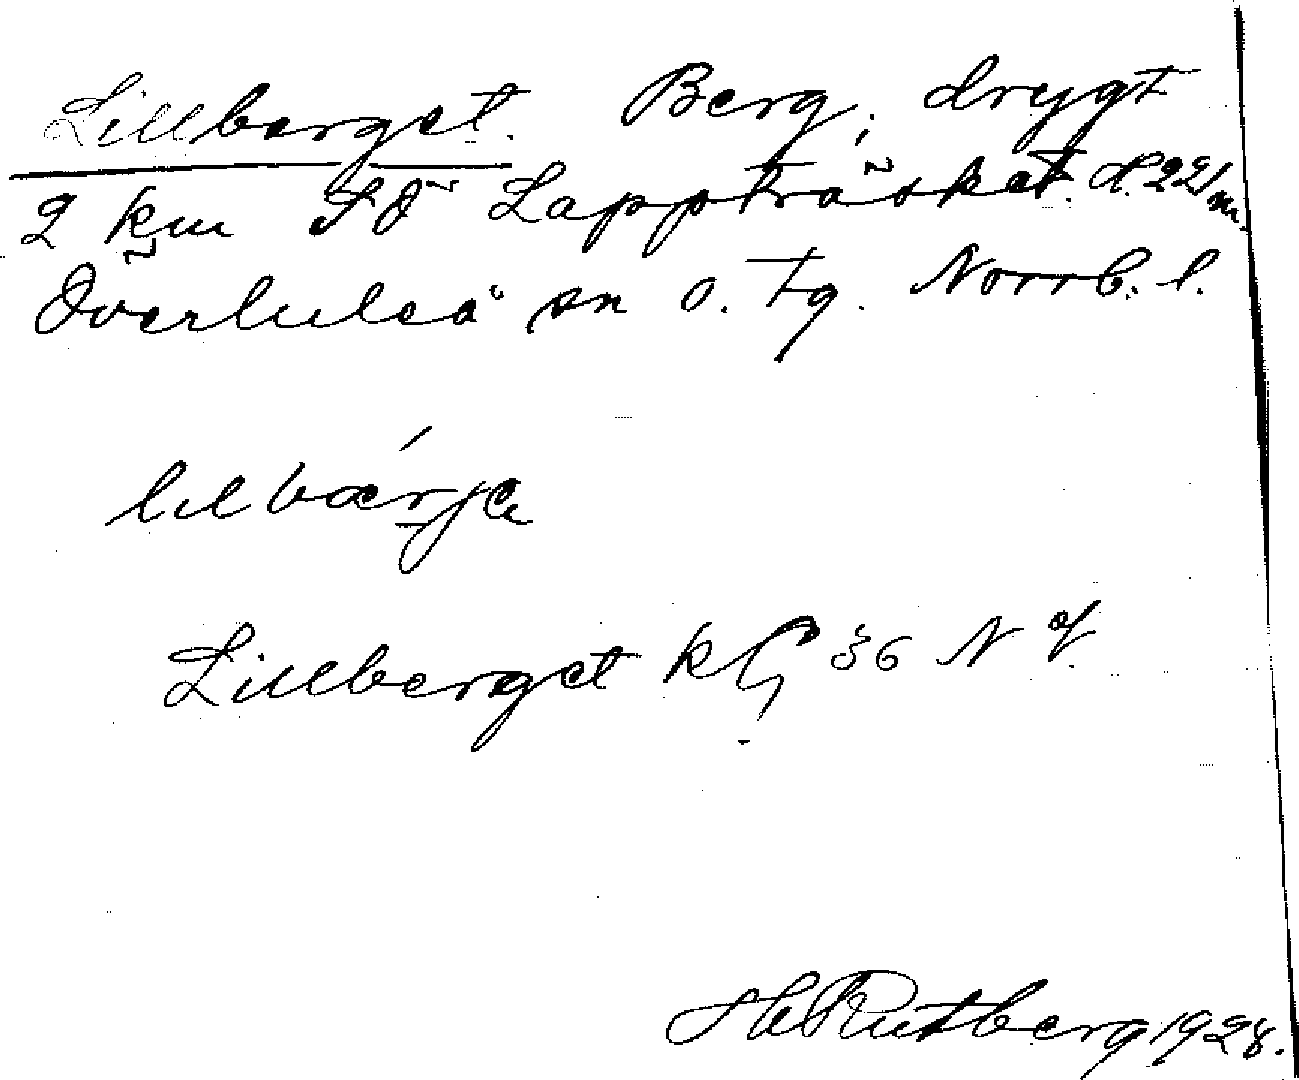 Lillberget. Berg, drygt
2 km SÖ Lappträsket. H. 221 m.
Överluleå sn o. tg. Norrb. l.
lılbærjɛ
Lillberget k 36 N
H Rutberg 1928.